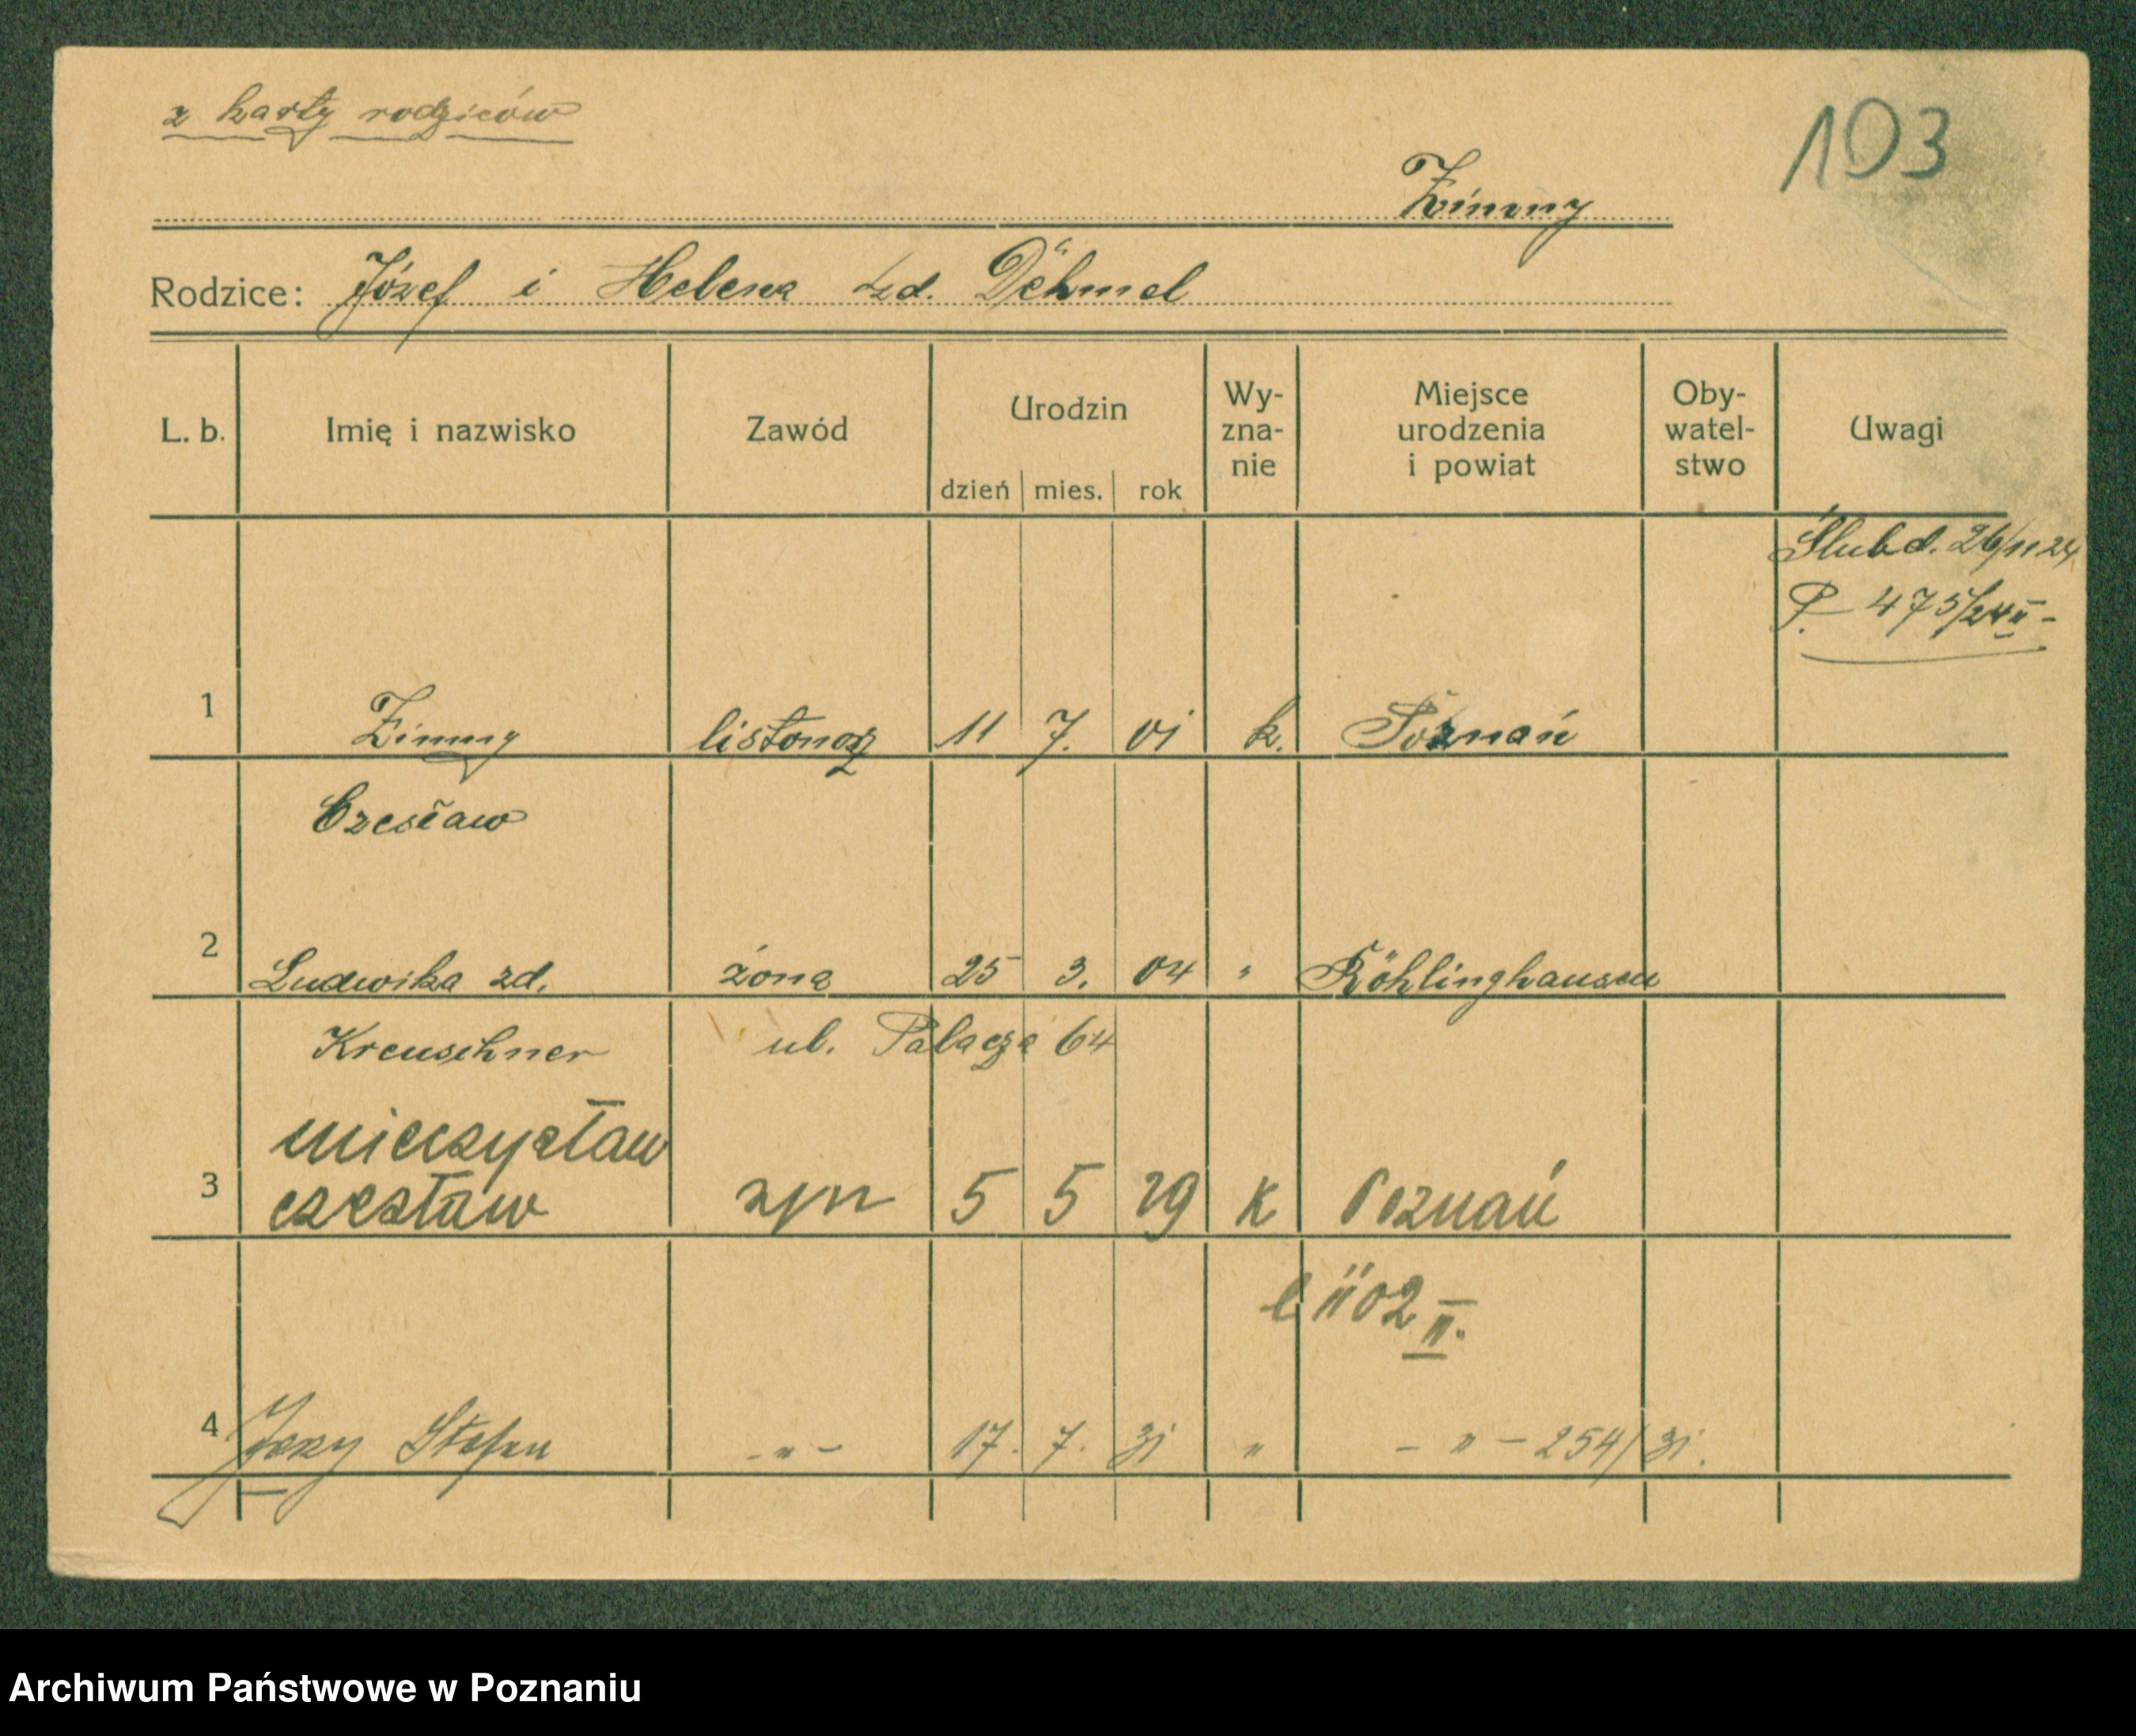 z karty rodziców
103
Zimny
Rodzice: Józef i Helena zd. Döhmel
L. b. Imię i nazwisko Zawód Urodzin dzień mies. rok Wy-zna-nie Miejsce urodzenia i powiat Oby-watel-stwo Uwagi
Ślub d. 26/11 24
P. 475/24 II -
1 Zimny listonosz 11 7. 01 k. Poznań
Czesław
2 Ludwika zd. żona 25 3. 04 " Röhlinghausen
Kreuschner ul. Palacza 64
Mieczysław
3 Czesław syn 5 5 29 K Poznań
1102 II.
4 Jerzy Stefan - " - 17. 7. 31 " - " - 254/31.
Archiwum Państwowe w Poznaniu